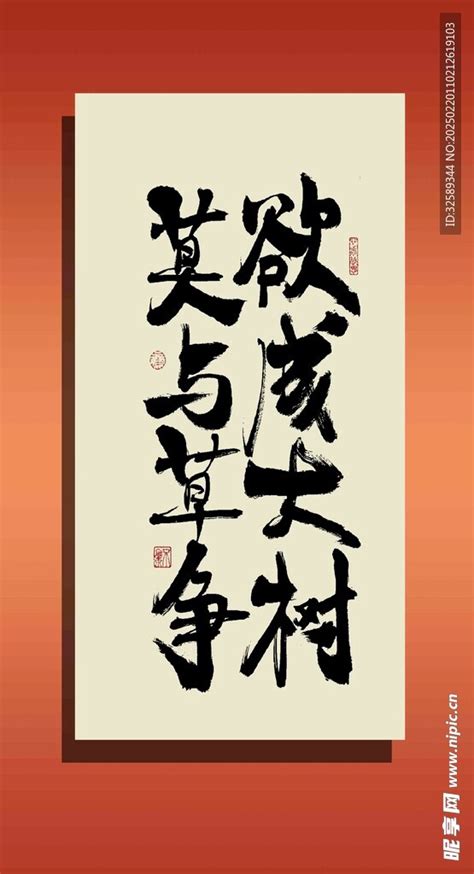 欲成大树
莫与草争
ID:32589344 NO:20250220110212619103
昵享网 www.nipic.cn